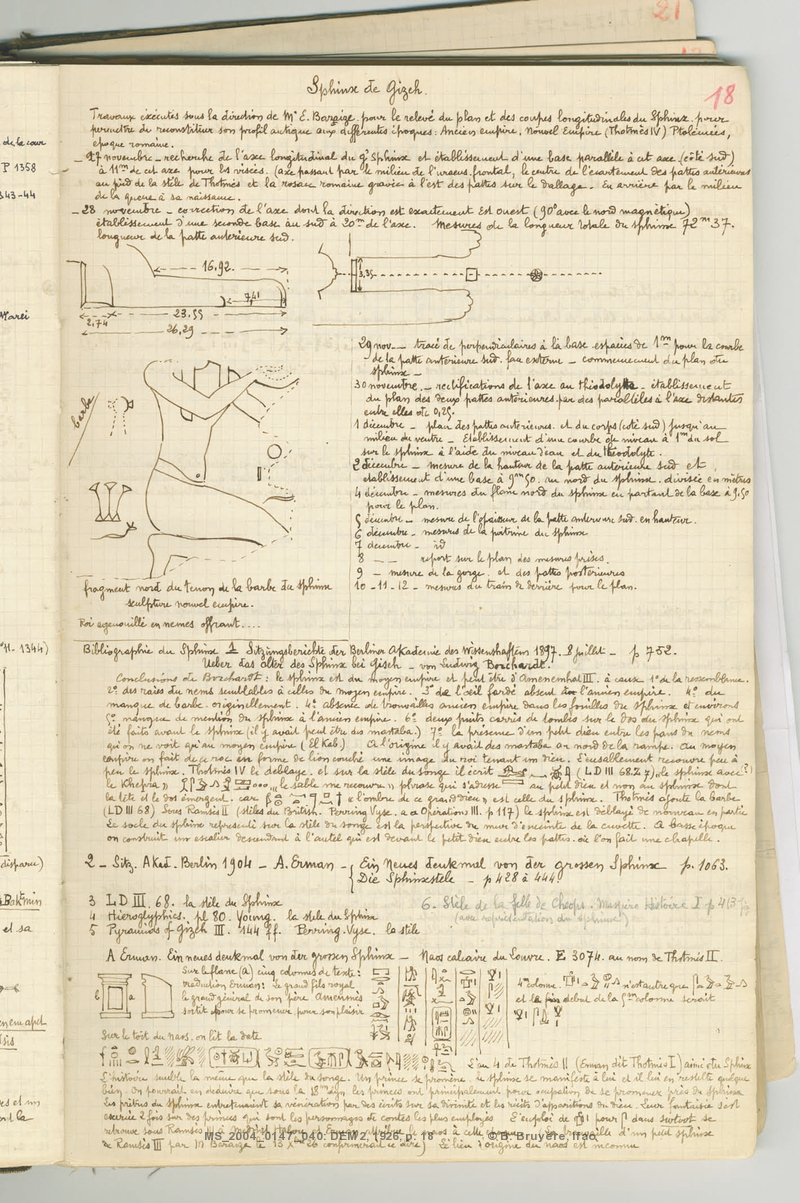 21
18
Sphinx de Gizeh.
Travaux exécutés sous la direction de Mr E. Baraize pour le relevé du plan et des coupes longitudinales du Sphinx pour
permettre de reconstituer son profil antique aux différentes époques : Ancien empire, Nouvel Empire (Thotmès IV) Ptolémées,
époque romaine.
_ 27 novembre _ recherche de l'axe longitudinal du gd Sphinx et établissement d'une base parallèle à cet axe (côté sud)
à 11m de cet axe pour les visées. (axe passant par le milieu de l'uraeus frontal, le centre de l'écartement des pattes antérieures
au pied de la stèle de Thotmès et la rosace romaine gravée à l'est des pattes sur le dallage _ En arrière par le milieu
de la queue à sa naissance.
_ 28 novembre _ correction de l'axe dont la direction est exactement Est ouest (90° avec le nord magnétique)
établissement d'une seconde base au sud à 20m de l'axe. Mesures de la longueur totale du sphinx 72m37.
longueur de la patte antérieure sud.
16,92
7,41
23.55
2,74
26,29
3,35
29 nov _ tracé de perpendiculaires à la base espacées de 1m pour la courbe
de la patte antérieure sud. face externe _ commencement du plan du
sphinx _
30 novembre. _ rectifications de l'axe au théodolyte. établissement
du plan des deux pattes antérieures par des parallèles à l'axe distantes
entre elles de 0,25.
1 décembre _ plan des pattes antérieures. et du corps (côté sud) jusqu'au
milieu du ventre _ Etablissement d'une courbe de niveau à 1m du sol
sur le sphinx à l'aide du niveau d'eau et du théodolyte.
2 décembre _ mesure de la hauteur de la patte antérieure sud et
établissement d'une base à 9m50 au nord du sphinx. divisée en mètres
4 décembre _ mesures du flanc nord du sphinx en partant de la base à 9,50
pour le plan.
5 décembre _ mesure de l'épaisseur de la patte antérieure sud. en hauteur.
6 décembre _ mesures de la poitrine du sphinx
7 décembre _ id
8 _ _ report sur le plan des mesures prises.
9 _ mesure de la gorge et des pattes postérieures
10 - 11 - 12 _ mesures du train de derrière pour le plan.
barbe
fragment nord du tenon de la barbe du sphinx
sculpture nouvel empire.
Roi agenouillé en nemes offrant....
Bibliographie du Sphinx 1 Sitzungsberichte der Berliner Akademie des Wissenshaften 1897. 8 juillet _ p 752.
Ueber das alter des Sphinx bei Gisch _ von Ludwig Borchardt.
Conclusions de Borchardt : le sphinx est du moyen empire et peut être d'Amenemhat III. à cause 1° de la ressemblance.
2° des raies du nems semblables à celles du moyen empire. 3° de l'œil fardé absent à l'ancien empire. 4° du
manque de barbe originellement. 4° absence de trouvailles ancien empire dans les fouilles du sphinx et environs
5° manque de mention du sphinx à l'ancien empire. 6° deux puits carrés de tombes sur le dos du sphinx qui ont
été faits avant le sphinx (il y avait peut être des mastaba.) 7° la présence d'un petit dieu entre les pans du nems
qui on ne voit qu'au moyen empire (El Kab.) A l'origine il y avait des mastaba au nord de la rampe. Au moyen
empire on fait de ce roc en forme de lion couché une image du roi tenant un dieu. L'ensablement recouvre peu à
peu le sphinx. Thotmès IV le déblaye. et sur la stèle du songe il écrit (LD III 68.Z 7) "le sphinx avec?
le Khepra" "le sable me recouvre" phrase qui s'adresse au petit dieu et non au sphinx dont
la tête et le dos émergent. car "l'ombre de ce grand dieu" est celle du sphinx. Thotmès ajoute la barbe
(LD III 68) Sous Ramsès II (stèles du British. Perring Vyse. a a Operations III. p 117) le sphinx est déblayé de nouveau en partie
Le socle du sphinx représenté sur la stèle du songe est la perspective du mur d'enceinte de la cuvette. A basse époque
on construit un escalier descendant à l'autel qui est devant le petit dieu entre les pattes. où l'on fait une chapelle.
2 _ Sitz. Akad. Berlin 1904 _ A. Erman _ Ein Neues denkmal von der grossen Sphinx p. 1063.
Die Sphinxstele _ p 428 à 444.
3 LD III. 68. la stèle du Sphinx
4 Hieroglyphics. pl 80. Young. le stele du Sphinx
5 Pyramids of Gizeh III. 144 ff. Perring. Vyse. la stèle
6. Stèle de la fille de Cheops. Maspero Histoire I p 413
(avec représentation du sphinx)
A Erman. Ein neues denkmal von der grossen Sphinx _ Naos calcaire du Louvre. E 3074. au nom de Thotmès II.
Sur le flanc (a) cinq colonnes de texte :
traduction Erman : le grand fils royal
le grand général de son père Amenmès
sortit pour se promener pour son plaisir
4e colonne. n'est autre que
et le début de la 5me colonne serait
Sur le toit du naos. on lit la date
L'an 4 de Thotmès II (Erman dit Thotmès I) aimé du Sphinx
L'histoire semble la même que la stèle du songe. Un prince se promène. le sphinx se manifeste à lui et il lui en restitue quelque
bien. On pourrait en déduire que sous la 18me dyn. les princes ont principalement pour occupation de se promener près du Sphinx
les prêtres du sphinx entretenaient sa vénération par des écrits sur sa divinité et les récits d'apparitions du dieu. Leur fantaisie s'est
exercée 2 fois sur des princes qui sont les personnages de contes les plus employés.
de Ramsès III par Mr Baraize
Le lieu d'origine du naos est inconnu
MS_2004_0147_040: DEM 2, 1926, p. 18 © B. Bruyère, Ifao
de la cour
P 1358
343-44
°11. 1344)
disparu)
et sa